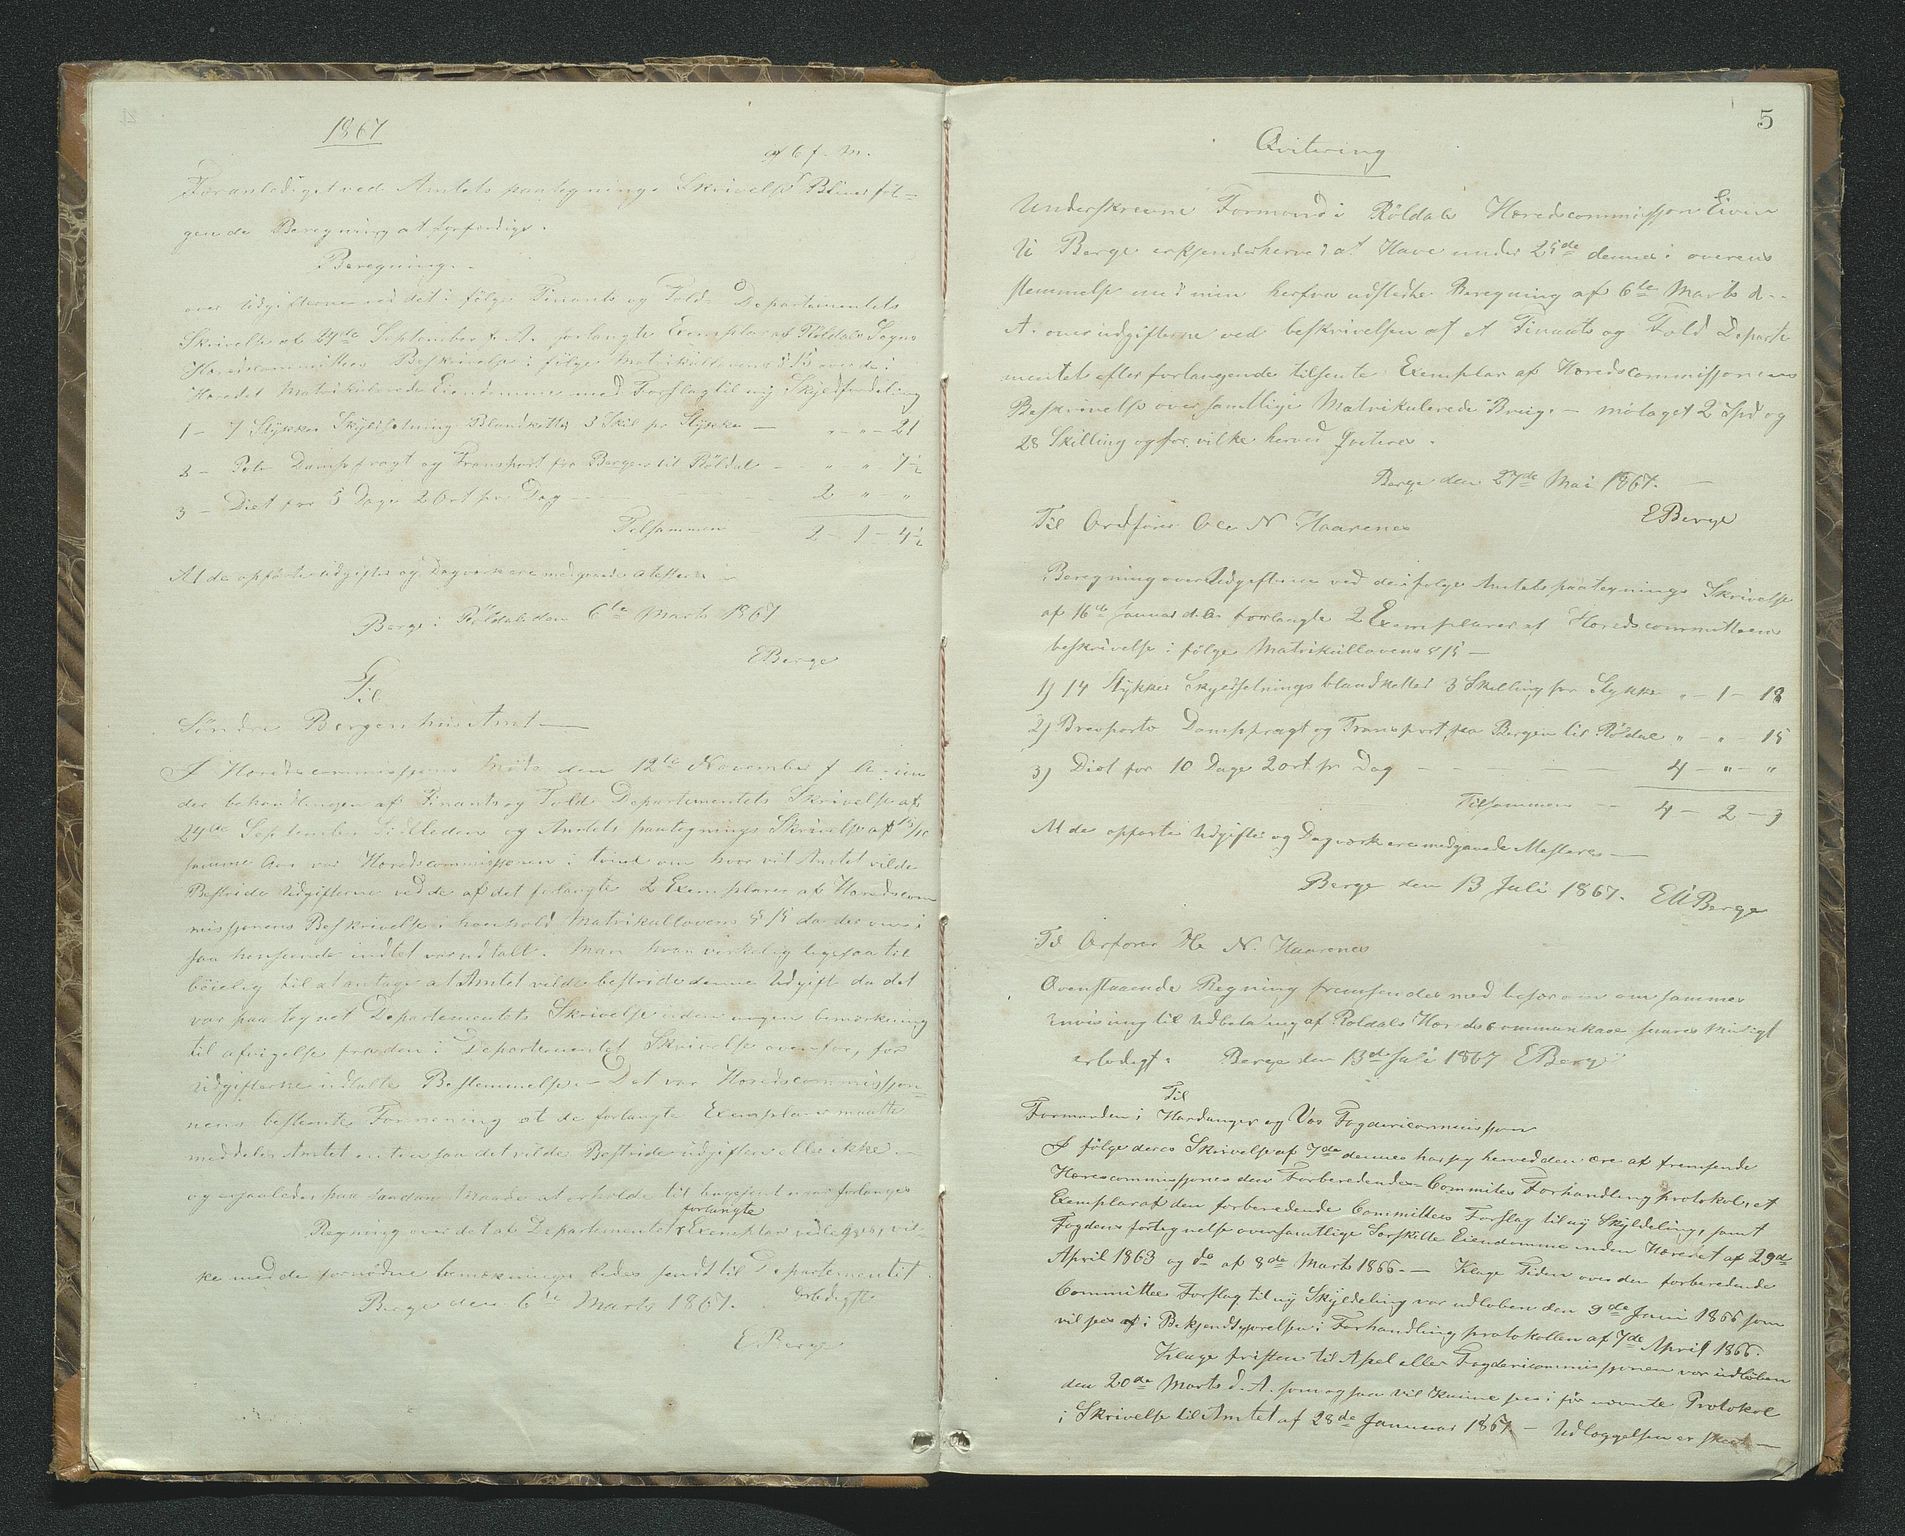 1867
af 6 f. M.
Foranlediget ved Amtets paategnings Skrivelse Bliver føl-
gende Beregning at forferdige.
Beregning.
over Udgifterne ved det i følge Finants og Told Departementets
Skrivelse af 29de September f. A. forlangte Exemplar af Röldals Sogns
Heredscommittees Beskrivelse i følge Matrikullovens § 15 over de i
Heredet Matrikulerede Eiendomme med Forslag til ny Skyldfordeling
1 - 7 Stykker Skyldsetning Blanketter 3 Skil pr Stykke - " - " - 21
2 - Porto Dampfragt og Transport fra Bergen til Röldal - " - " - 7½
3 - Diet for 5 Dage 2 Ort pr Dag - 2 " "
Tilsammen 2 - 1 - 4½
At de opførte udgifter og Dagverk ere medgaaede atesteres -
Berge i Röldal den 6te Marts 1867
E Berge
Til
Söndre Bergenhus Amt
I Heredscommissjons Møte den 12te November f A. un
der behandlingen af Finants og Told Departementets Skrivelse af
29de September Sidstleden og Amtets paategnings Skrivelse af 15/10
samme Aar var Heredscommissjonen i tvivl om hvorvit Amtet vilde
Bestride Udgifterne ved de af det forlangte 2 Exemplarer af Heredscom
missjonens Beskrivelse i henhold Matrikullovens § 15 da der over i
saa henseende indtet var udtalt. Man kvan virkelig ligesaa til
böielig til at antage at Amtet vilde bestride denne Udgift da det
var paategnet Departementets Skrivelse uden nogen bemerkning
til afvigelse fra den i Departementet Skrivelse ovenfor, for
Udgifterne udtalte Bestemmelse. - Det var Heredscommissjon-
nens bestemte Formening at de forlangte Exemplarer maatte
meddeles Amtet enten saa det vilde Bestride udgiften eller ikke -
og egaaledes paa saadan Maade at erholde til bagesent naar forlanges
Regning over det af Departementet forlangte Exemplar vedlegges, vil-
ke med de fornödne bemerkninger bedes sendt til Departementet.
Berge den 6te Marts 1867. Erbödigst
E Berge
5
Qvitering
Underskrevne Formand i Röldals Heredscommissjon Eivin
U Berge erkjender herved at Have under 25de dennes i overens
stemmelse med min herfra udstedte Beregning af 6te Marts d.
A. over udgifterne ved beskrivelsen af et Finants og Told Departe
mentet efter forlangende tilsente Exemplar af Heredscommissjonens
Beskrivelse over samtlige Matrikulerede Brug. - motaget 2 Spd og
28 Skilling og for vilke herved Qviteres.
Berge den 27de Mai 1867. -
E Berge
Til Ordförer Ole N Haarenes
Beregning over Udgifterne ved de i følge Amtets paategnings Skrivelse
af 16de Januar d. A. forlangte 2 Exemplarer af Heredscommitteens
beskrivelse i følge Matrikullovens § 15 -
1) 14 Stykker Skyldsetnings blanketter 3 Skilling pr Stykke " - 1 - 18
2) Brevporto Dampfragt og Transport fra Bergen til Röldal " - " - 15
3) Diet for 10 Dage 2 ort pr Dag - 4 - " - "
Tilsammen - 4 - 2 - 9
At de opførte Udgifter og Dagverk ere medgaaede Atesteres -
Berge den 13 Juli 1867. E U Berge
Til Orförer Ole N. Haarenes
Ovenstaaende Regning fremsendes med besor om om sammes
anvisning til Udbetaling af Röldals Heredscommunkase snares muligt
erledigt. Berge den 13de Juli 1867 E Berge
Til
Formanden i Hardanger og Vos Fogdericommissjon
I følge deres Skrivelse af 7de dennes har jeg herved den ære at fremsende
Herescommissjones den Forberedende Commites Forhandlingsprotokol, et
Exemplar af den forberedende Committees Forslag til ny Skyldeling, samt
Fogdens fortegnelse over samtlige Sørskilte Eiendomme inden Heredet af 29de
April 1863 og do af 8de Marts 1866. - Klage Tiden over den forberedende
Committes Forslag til ny Skyldeling var udloben den 9de Juni 1866 som
vil sees af i Bekjendtgjørelsen i Forhandlingsprotokollen af 7de April 1866.
Klage fristen til Apel eller Fogdericommissjonen var udløben
den 20de Marts d. A. som ogsaa vil kunne sees i før nevnte Protokol
i Skrivelse til Amtet af 28de Januar 1867 - Udleggelsen er skeet -